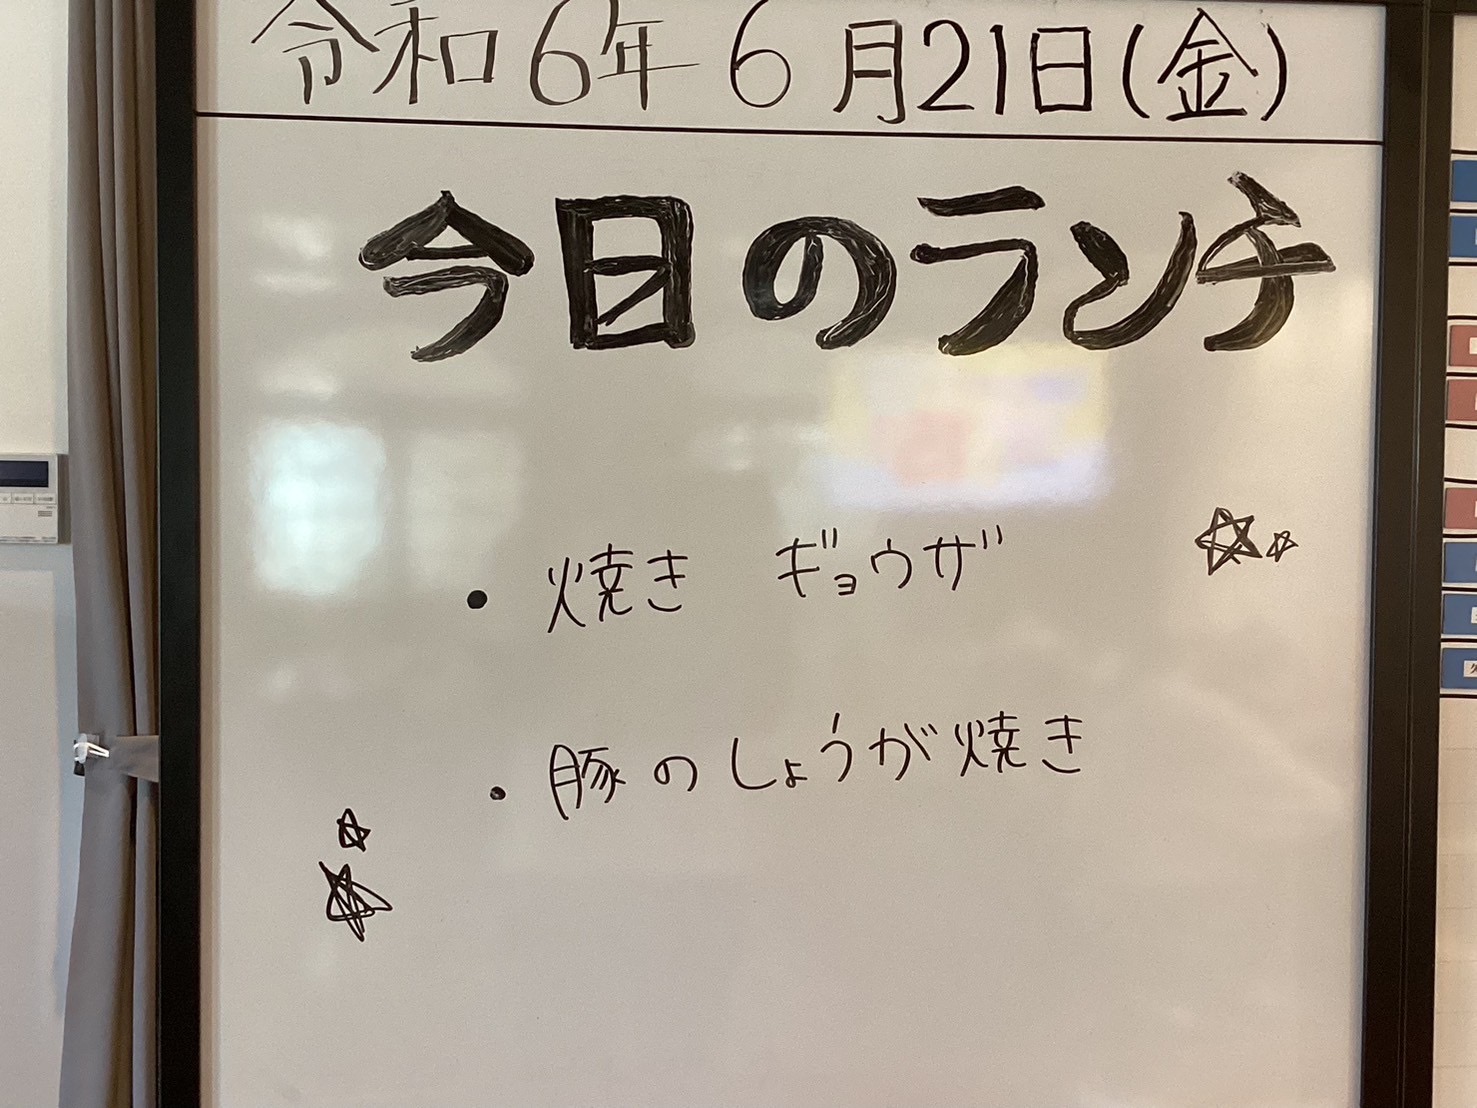 令和6年 6月21日(金)
今日のランチ
・焼き ギョウザ
・豚のしょうが焼き